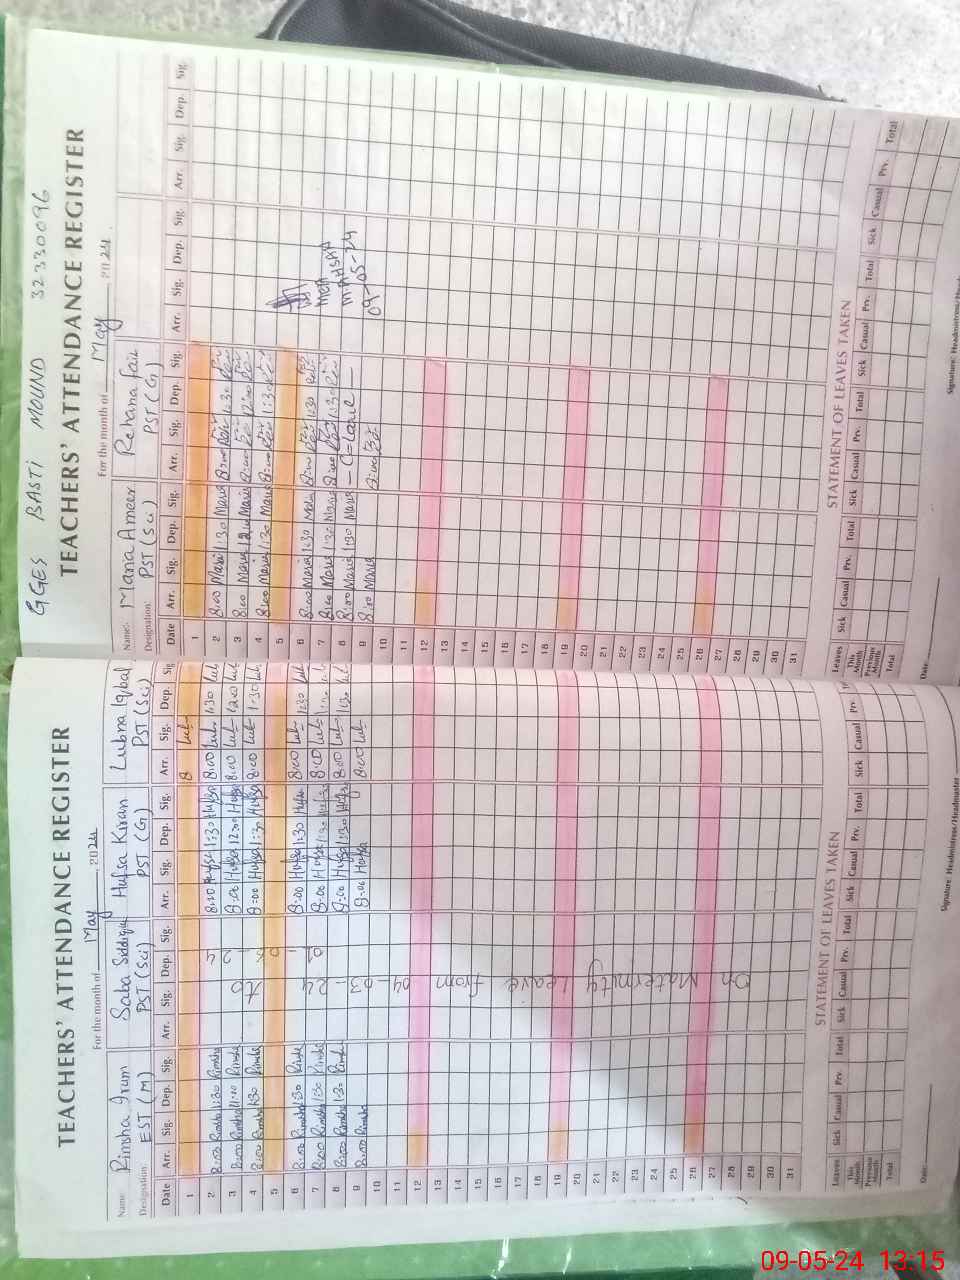 TEACHERS' ATTENDANCE REGISTER
For the month of May, 2024
Name Rimsha Irum Saba Siddique Hafsa Kiran Lubna Iqbal
Designation: EST (M) PST (Sci) PST (G) PST (Sci)
Date Arr. Sig. Dep. Sig. Arr. Sig. Dep. Sig. Arr. Sig. Dep. Sig. Arr. Sig. Dep. Sig.
1 8 Lub
2 8:00 Rimsha 1:30 Rimsha 8:00 Hafsa 1:30 Hafsa 8:00 Lub 1:30 Lub
3 8:00 Rimsha Rimsha 8:00 Hafsa 12:00 Hafsa 8:00 Lub 12:00 Lub
4 8:00 Rimsha 1:30 Rimsha 8:00 Hafsa 1:30 Hafsa 8:00 Lub 1:30 Lub
5
6 8:00 Rimsha 1:30 Rimsha 8:00 Hafsa 1:30 Hafsa 8:00 Lub 1:30 Lub
7 8:00 Rimsha 1:30 Rimsha 8:00 Hafsa 1:30 Hafsa 8:00 Lub
8 8:00 Rimsha 1:30 Rimsha 8:00 Hafsa 1:30 Hafsa 8:00 Lub 1:30 Lub
9 8:00 Rimsha 8:00 Hafsa 8:00 Lub
10
11
12
13
14
15
16
17
18
19
20
21
22
23
24
25
26
27
28
29
30
31
On Maternity Leave from 04-03-24
to
STATEMENT OF LEAVES TAKEN
Leaves Sick Casual Prv. Total Sick Casual Prv. Total Sick Casual Prv. Total Sick Casual Prv.
This Month
Previous Month
Total
Date
Signature: Headmistress/Headmaster
GGES BASTI MOUND 32330096
TEACHERS' ATTENDANCE REGISTER
For the month of May, 2024
Name:. Maria Ameer Rehana
Designation: PST (Sci) PST (G)
Date Arr. Sig. Dep. Sig. Arr. Sig. Dep. Sig. Arr. Sig. Dep. Sig. Arr. Sig. Dep. Sig.
1
2 8:00 Maria 1:30 Maria 8:00 1:30
3 8:00 Maria 12:00 Maria 8:00 12:00
4 8:00 Maria 1:30 Maria 8:00 1:30
5
6 8:00 Maria 1:30 Maria 8:00 1:30
7 8:00 Maria 1:30 Maria 8:00 1:30
8 8:00 Maria 1:30 Maria — C=Leave —
9 8:00 Maria 8:00
10
11
12
13
14
15
16
17
18
19
20
21
22
23
24
25
26
27
28
29
30
31
MEA
09-05-24
STATEMENT OF LEAVES TAKEN
Leaves Sick Casual Prv. Total Sick Casual Prv. Total Sick Casual Prv. Total Sick Casual Prv. Total
This Month
Previous Month
Total
Date
Signature: Headmistress/
09-05-24 13:15